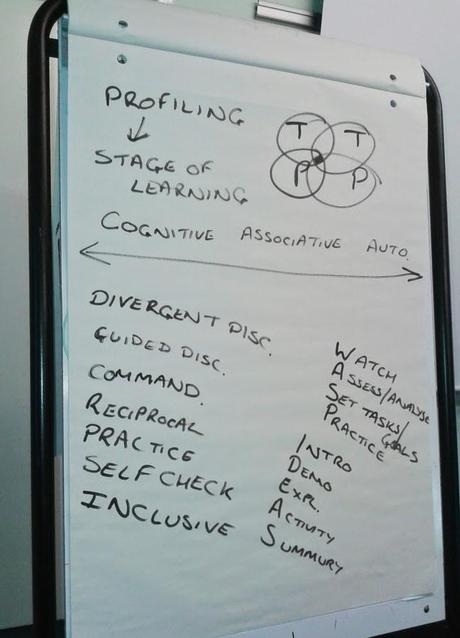 PROFILING
STAGE OF
LEARNING
T T
P P
COGNITIVE ASSOCIATIVE AUTO.
DIVERGENT DISC.
GUIDED DISC.
COMMAND.
RECIPROCAL
PRACTICE
SELF CHECK
INCLUSIVE
WATCH
ASSESS/ANALYSE
SET TASKS/
GOALS
PRACTICE
INTRO
DEMO
EXPL.
ACTIVITY
SUMMURY